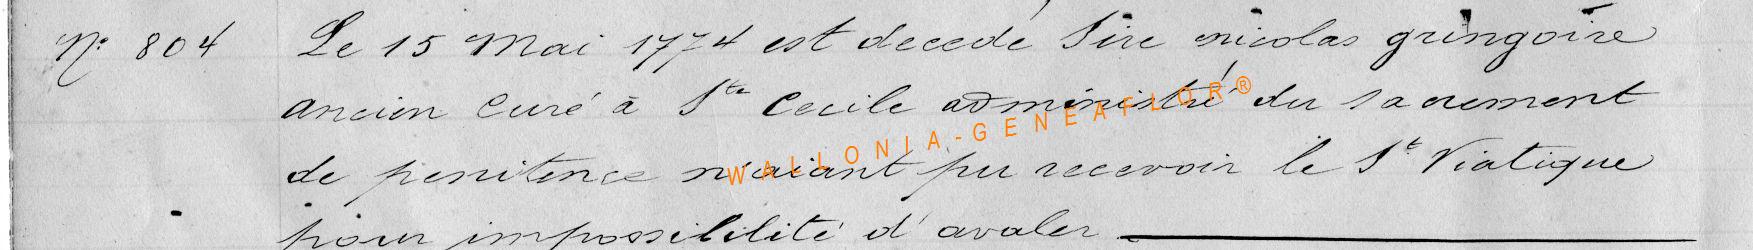 N° 804 Le 15 Mai 1774 est decedé Sire nicolas gringoire
ancien curé à Ste Cecile administré du sacrement
de penitence n'aiant pu recevoir le St Viatique
pour impossibilité d'avaler
WALLONIA-GENEAFLOR®